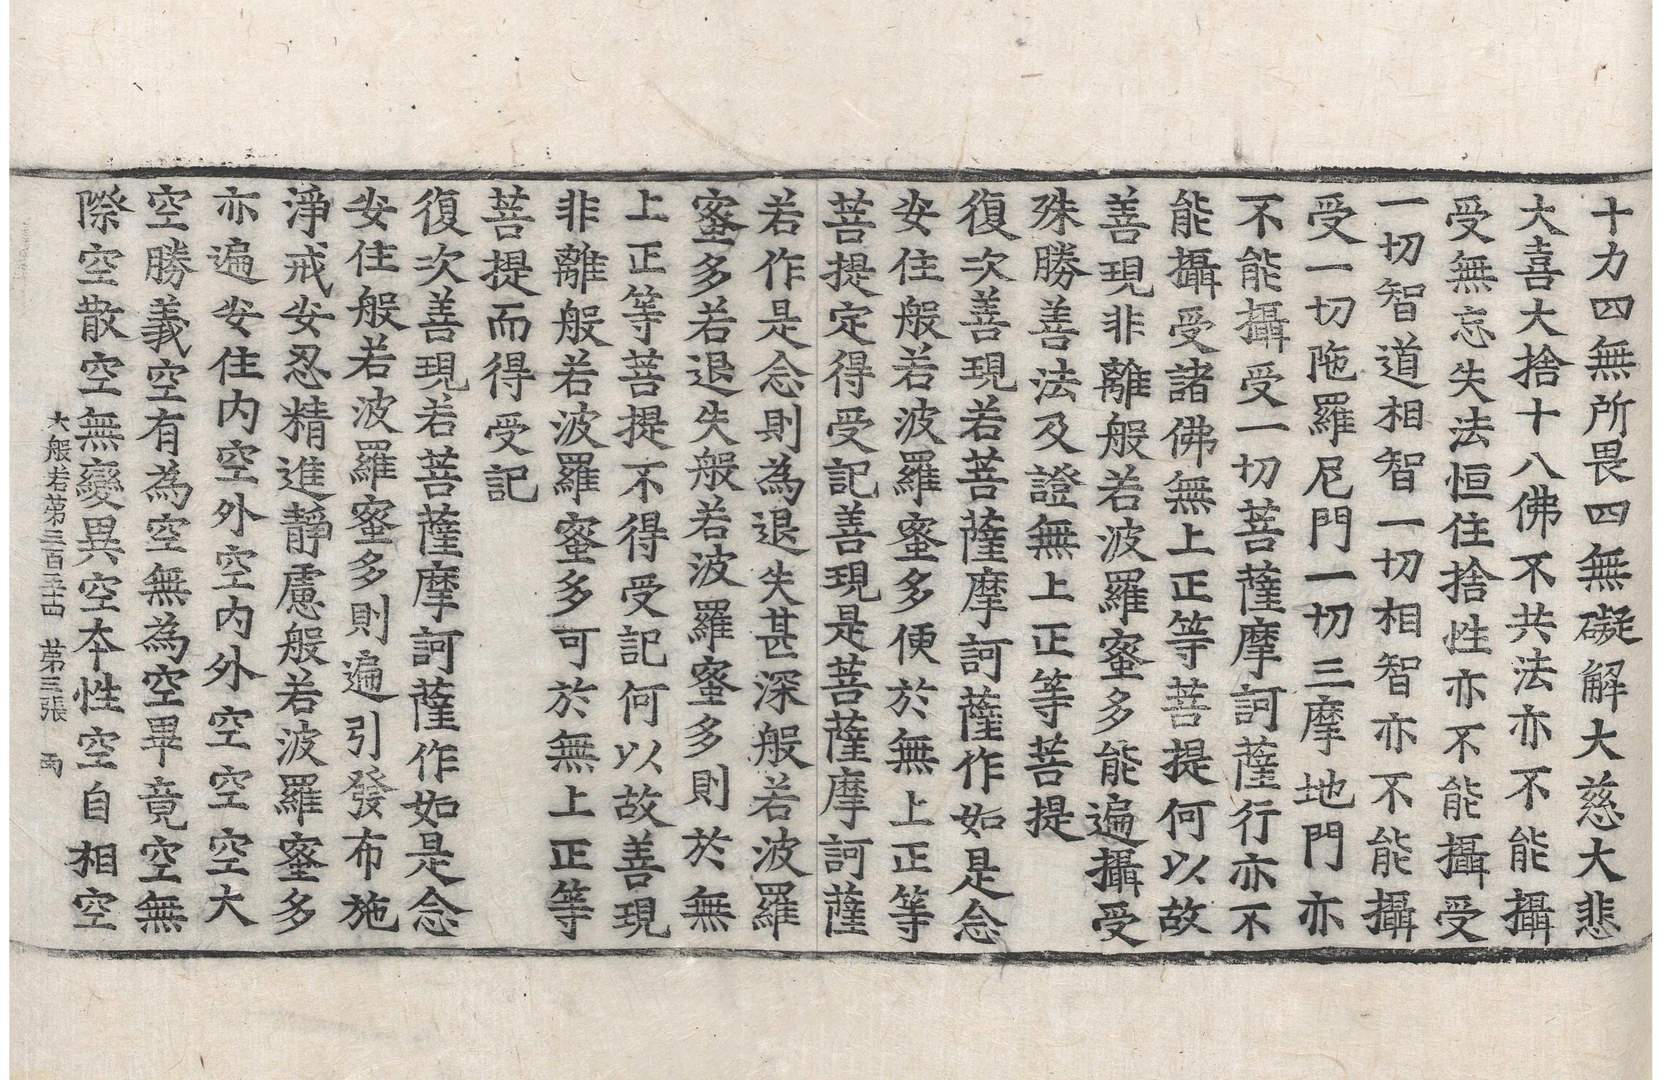 十力四無所畏四無礙解大慈大悲
大喜大捨十八佛不共法亦不能攝
受無忘失法恒住捨性亦不能攝受
一切智道相智一切相智亦不能攝
受一切陁羅尼門一切三摩地門亦
不能攝受一切菩薩摩訶薩行亦不
能攝受諸佛無上正等菩提何以故
善現非離般若波羅蜜多能遍攝受
殊勝善法及證無上正等菩提
復次善現若菩薩摩訶薩作如是念
安住般若波羅蜜多便於無上正等
菩提定得受記善現是菩薩摩訶薩
若作是念則為退失甚深般若波羅
蜜多若退失般若波羅蜜多則於無
上正等菩提不得受記何以故善現
非離般若波羅蜜多可於無上正等
菩提而得受記
復次善現若菩薩摩訶薩作如是念
安住般若波羅蜜多則遍引發布施
淨戒安忍精進靜慮般若波羅蜜多
亦遍安住內空外空內外空空空大
空勝義空有為空無為空畢竟空無
際空散空無變異空本性空自相空
大般若第三百二十四 第三張 雨